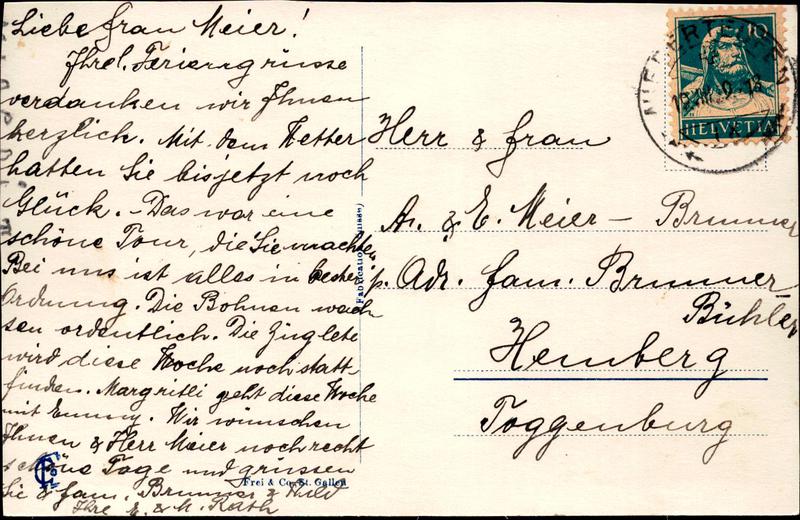 Liebe Frau Meier!
Ihre l. Feriensgrüsse
verdanken wir Ihnen
herzlich. Mit dem Wetter
hatten Sie bisjetzt noch
Glück. – Das war eine
schöne Tour, die Sie machten.
Bei uns ist alles in bester
Ordnung. Die Bohnen wach
sen ordentlich. Die Züglete
wird diese Woche noch statt-
finden. Margritli geht diese Woche
mit Emmy. Wir wünschen
Ihnen & Herr Meier noch recht
schöne Tage und grüssen
Sie & fam. Brunner &
Ihre E. & M. Rath
Fabrication Suisse
Frei & Co. St. Gallen
10
HELVETIA
NIEDERTEUFEN
Herr & Frau
A. & E. Meier – Brunner
p. Adr. fam. Brunner-
Bühler
Hemberg
Toggenburg